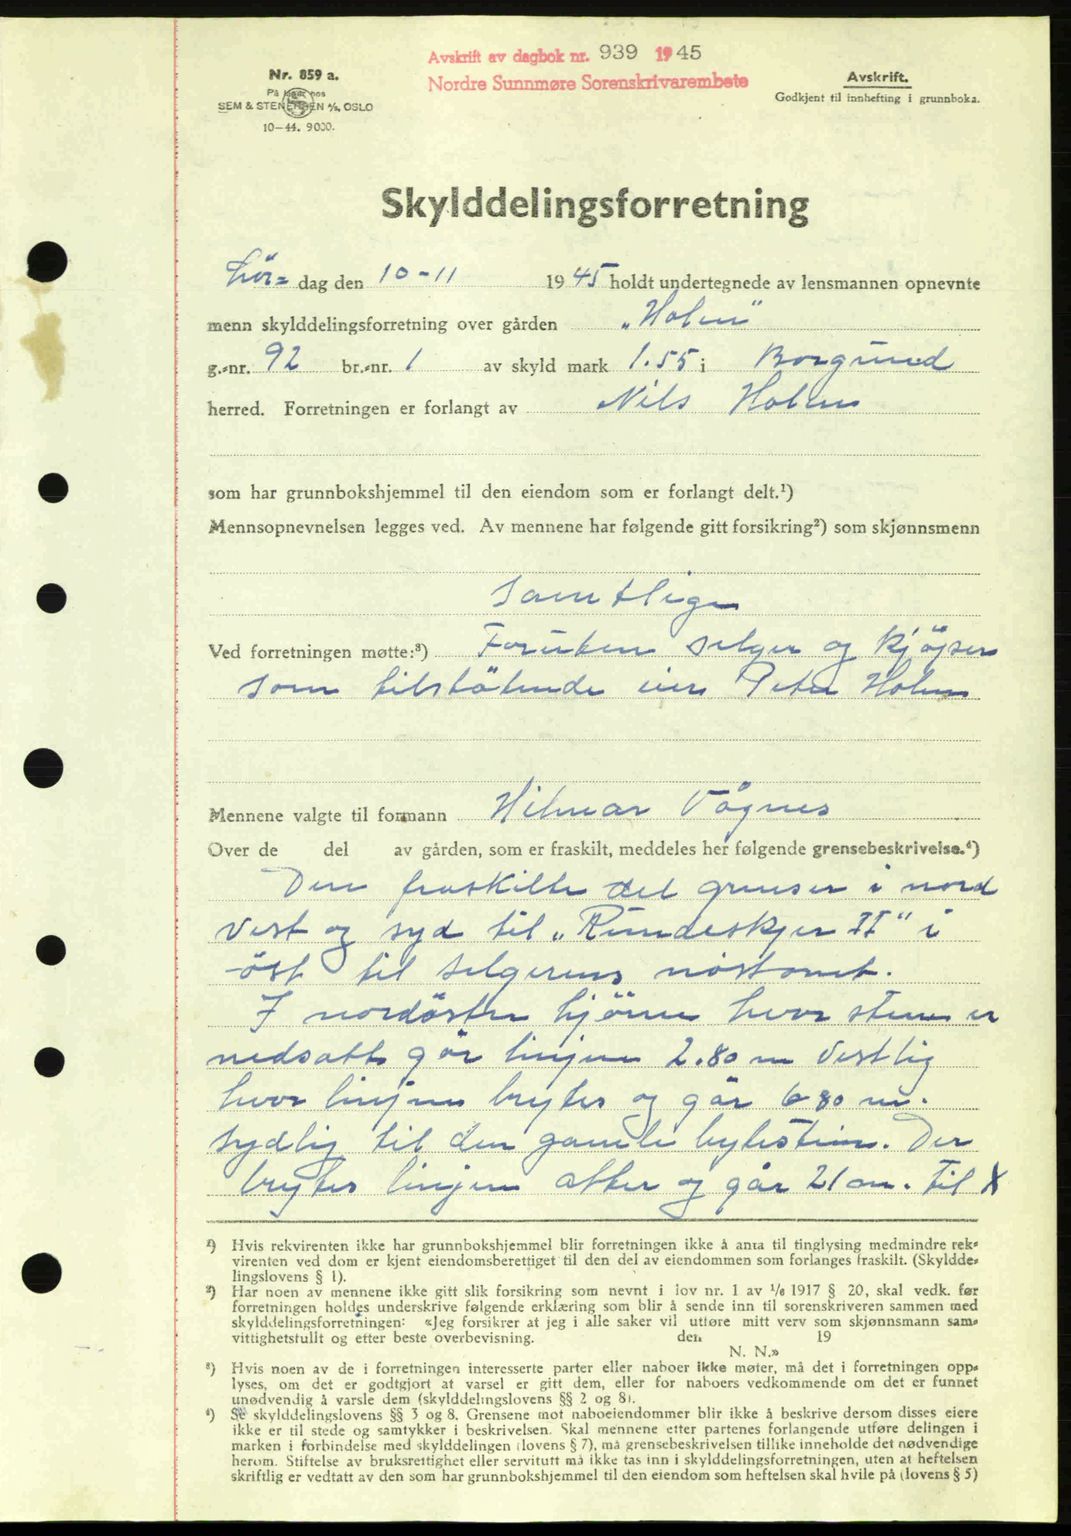 Avskrift av dagbok nr. 939 1945
Nordre Sunnmøre Sorenskrivarembete
Nr. 859 a.
På lager hos
SEM & STENERSEN A/S, OSLO
10-44. 9000.
Avskrift.
Godkjent til innhefting i grunnboka.
Skylddelingsforretning
Lør= dag den 10-11 1945 holdt undertegnede av lensmannen opnevnte
menn skylddelingsforretning over gården „Holen"
g.-nr. 92 br.-nr. 1 av skyld mark 1.55 i Borgund
herred. Forretningen er forlangt av Nils Holen
som har grunnbokshjemmel til den eiendom som er forlangt delt.¹)
Mennsopnevnelsen legges ved. Av mennene har følgende gitt forsikring²) som skjønnsmenn
samtlige
Ved forretningen møtte:³) Foruten selger og kjöper
som tilstötende eier Peter Holen
Mennene valgte til formann Hilmar Vågnes
Over de del av gården, som er fraskilt, meddeles her følgende grensebeskrivelse.⁴)
Den fraskilte del grenser i nord
vest og syd til „Rundeskjer II" i
öst til selgerens nöstomt.
I nordöstre hjörne hvor sten er
nedsatt går linjen 2.80 m vestlig
hvor linjen brytes og går 6 80 m.
sydlig til den gamle bytesten. Der
brytes linjen atter og går 21 m. til X
¹) Hvis rekvirenten ikke har grunnbokshjemmel blir forretningen ikke å anta til tinglysing medmindre rek-
virenten ved dom er kjent eiendomsberettiget til den del av eiendommen som forlanges fraskilt. (Skyldde-
lingslovens § 1).
²) Har noen av mennene ikke gitt slik forsikring som nevnt i lov nr. 1 av 1/6 1917 § 20, skal vedk. før
forretningen holdes underskrive følgende erklæring som blir å sende inn til sorenskriveren sammen med
skylddelingsforretningen: «Jeg forsikrer at jeg i alle saker vil utføre mitt verv som skjønnsmann sam-
vittighetsfullt og etter beste overbevisning. den 19
N. N.»
³) Hvis noen av de i forretningen interesserte parter eller naboer ikke møter, må det i forretningen opp-
lyses, om det er godtgjort at varsel er gitt dem, eller for naboers vedkommende om det er funnet
unødvendig å varsle dem (skylddelingslovens §§ 2 og 8).
⁴) Se skylddelingslovens §§ 3 og 8. Grensene mot naboeiendommer blir ikke å beskrive dersom disses eiere
ikke er til stede og samtykker i beskrivelsen. Skal mennene etter partenes forlangende utføre delingen i
marken i forbindelse med skylddelingen (lovens § 7), må grensebeskrivelsen tillike inneholde det nødvendige
herom. Stiftelse av bruksrettighet eller servitutt må ikke tas inn i skylddelingsforretningen, uten at heftelsen
skriftlig er vedtatt av den som har grunnbokshjemmel til den eiendom som heftelsen skal hvile på (lovens § 5)